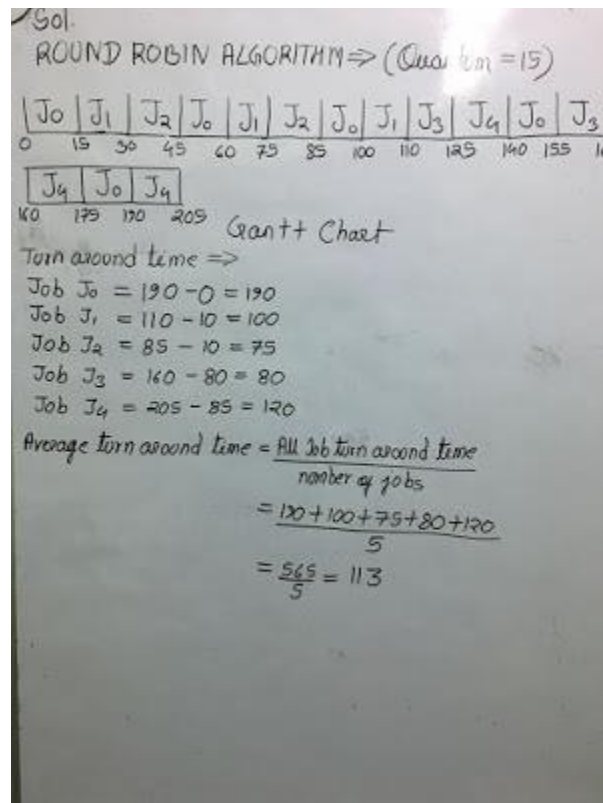 Sol.
ROUND ROBIN ALGORITHM => (Quantum = 15)
J0 | J1 | J2 | J0 | J1 | J2 | J0 | J1 | J3 | J4 | J0 | J3
0 15 30 45 60 75 85 100 110 125 140 155
J4 | J0 | J4
160 175 190 205 Gantt Chart
Turn around time =>
Job J0 = 190 - 0 = 190
Job J1 = 110 - 10 = 100
Job J2 = 85 - 10 = 75
Job J3 = 160 - 80 = 80
Job J4 = 205 - 85 = 120
Average turn around time = All Job turn around time
number of jobs
= 190+100+75+80+120
5
= 565/5 = 113